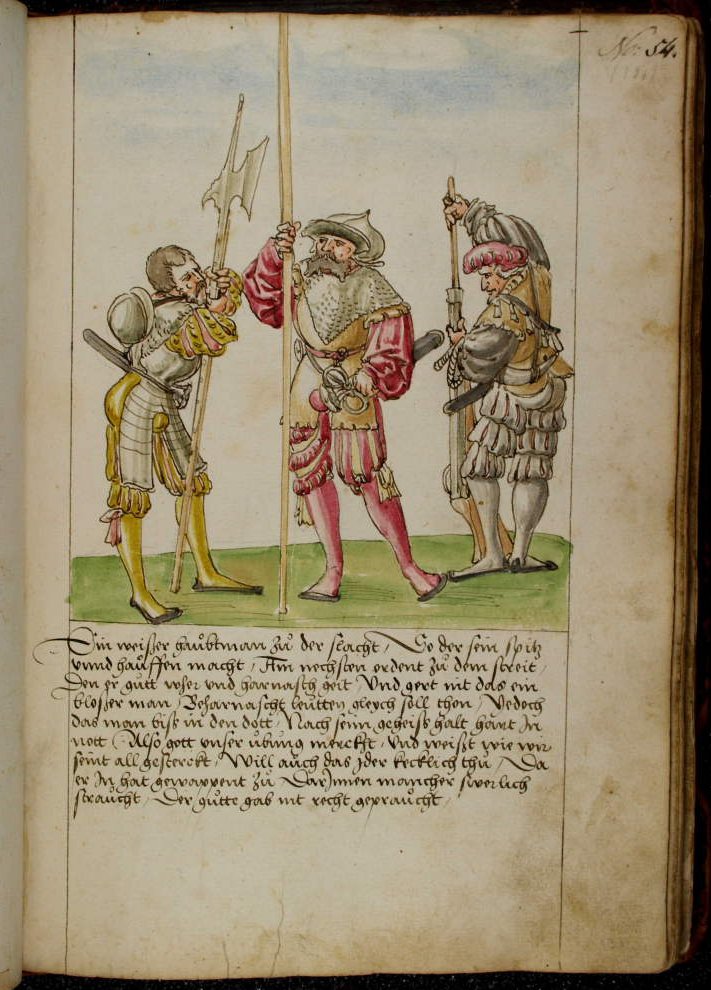 No: 54.
Ein weißer haubtman zů der slacht, So der sein spitz
vnnd hauffen macht, Am nechsten ordent zů dem streit,
Den er gůtt wher vnd harnasch geit, Vnd gert nit das ein
bloßer man, Beharnascht leütten gleych soll thon, Yedoch
das man biss in den dott, Nach seinn geheiss halt hart In
nott, Also gott vnser übung merckt, vnd weißt wie wir
seint all gesterckt, Will auch das yder kecklich thů, Da
er In hat gewappent zů, DarInnen mancher swerlich
straucht, Der gůtte gab nit recht gepraucht,